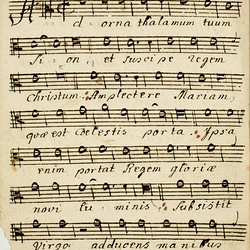 Adorna thalamum tuum
Sion et suscipe Regem
Christum. Amplectere Mariam,
quæ est coelestis porta. Ipsa
enim portat Regem gloriæ
novi luminis. Subsistit
Virgo adducens manibus